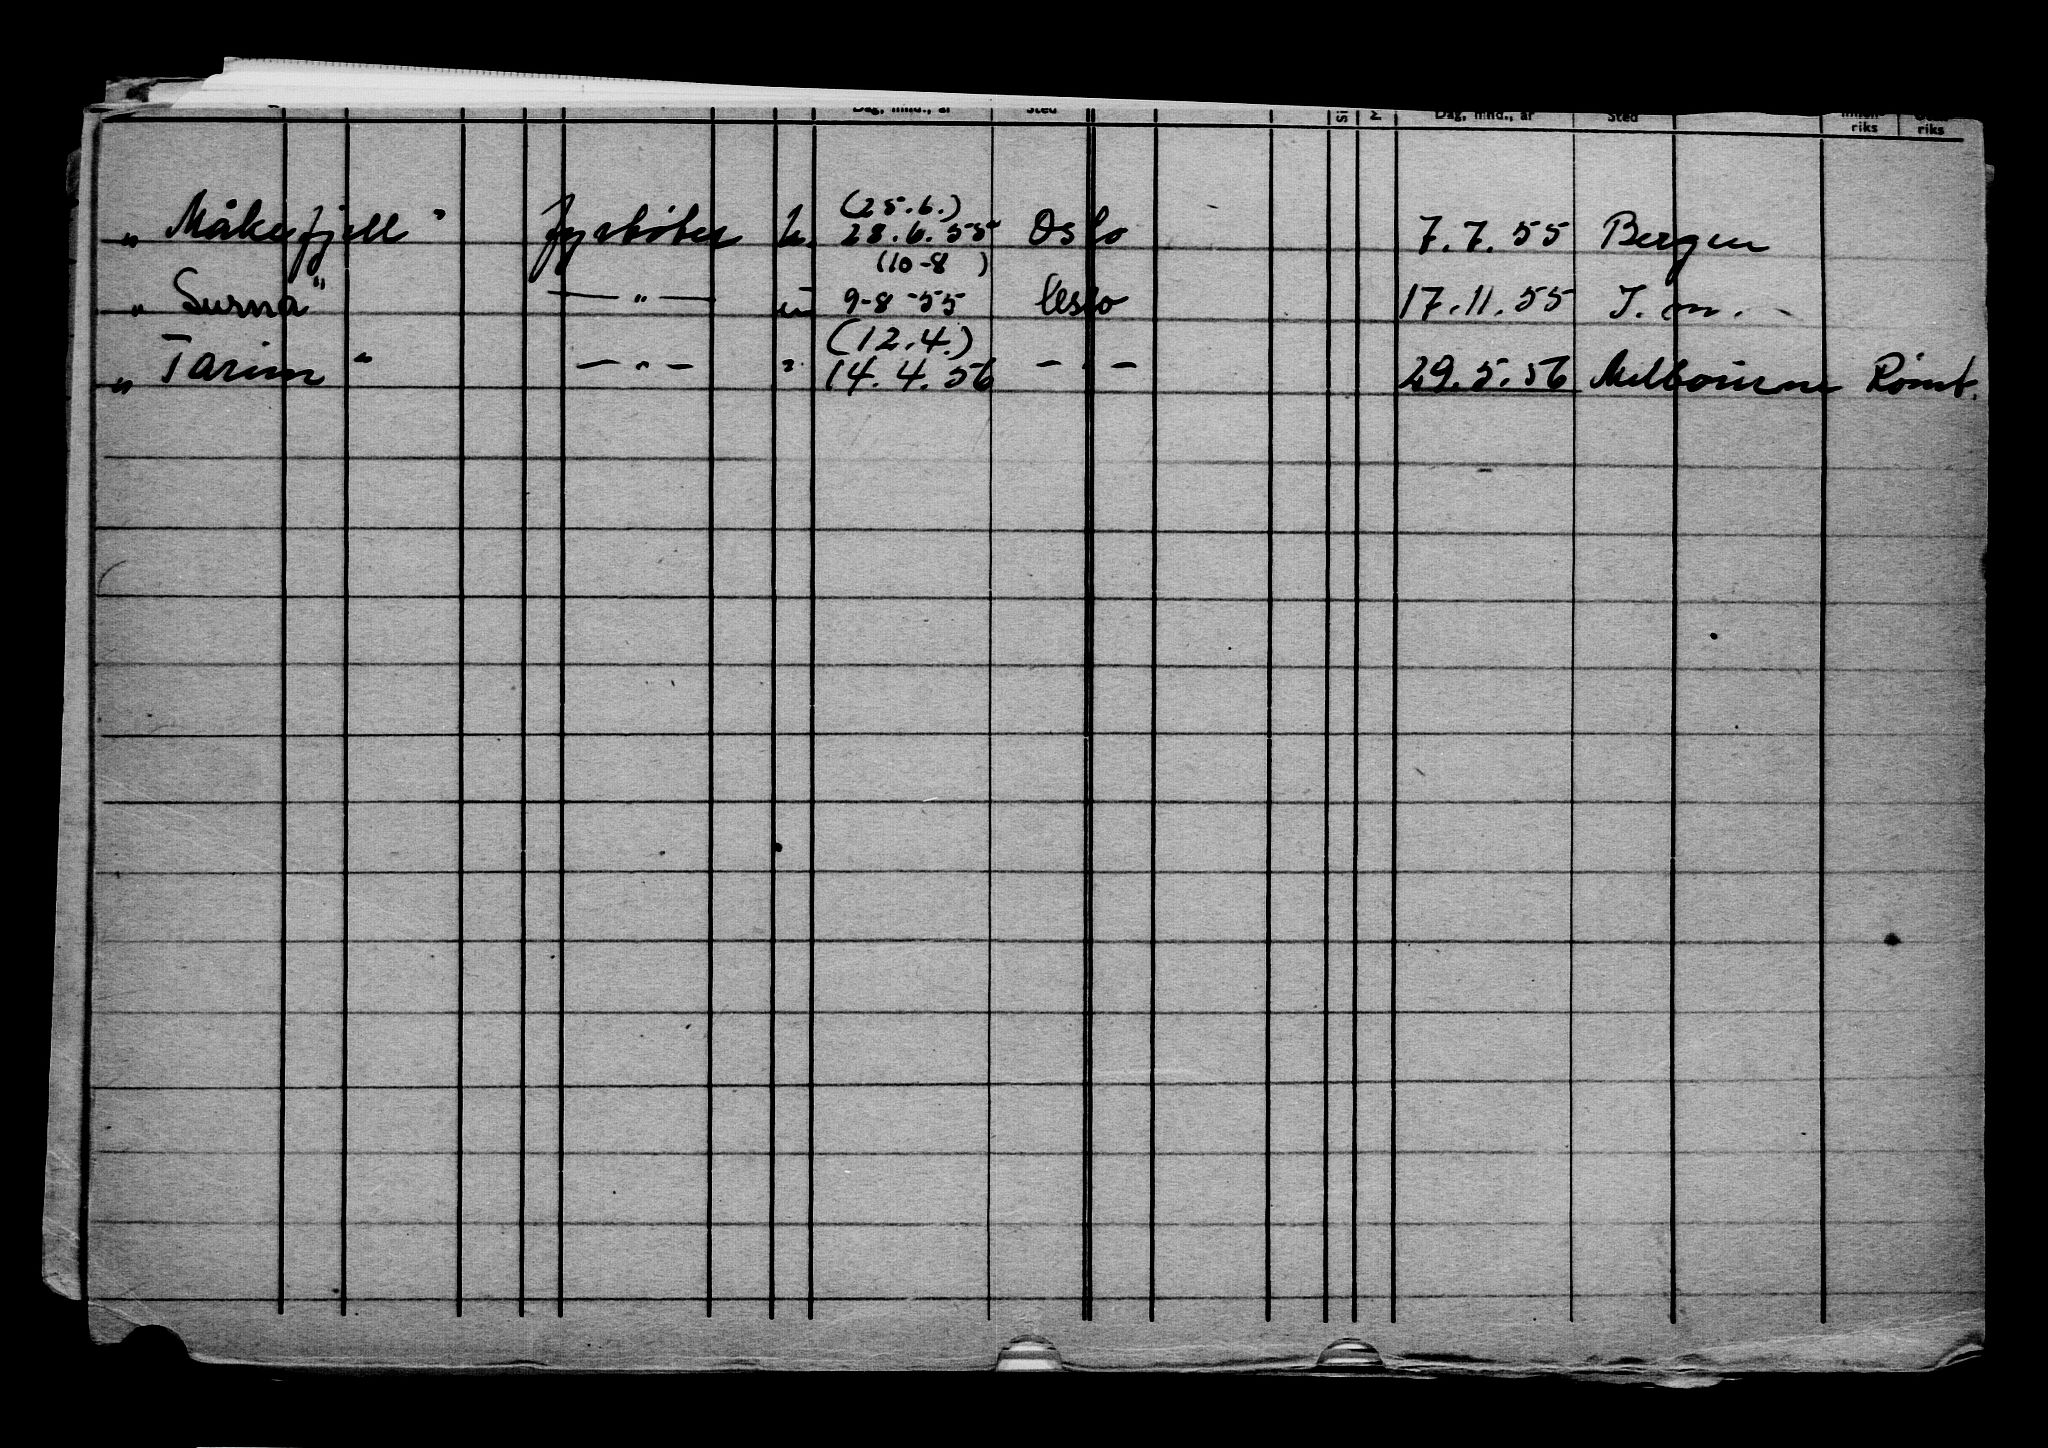 Dag, mnd., år Sted Dag, mnd., år Sted riks riks
(25.6.)
„Måkefjell" fyrbøter u. 28.6.55 Oslo 7.7.55 Bergen
(10-8 )
„Surna" — " — u 9-8-55 Oslo 17.11.55 T.m.
(12.4.)
„Tarim" — " — " 14.4.56 — " — 29.5.56 Melbourne Rømt.